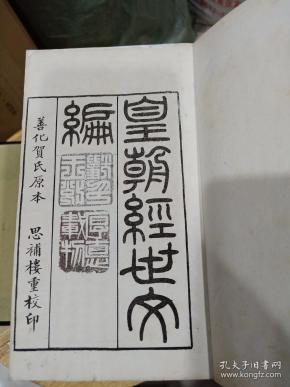 皇朝經世文
編
思補樓重校印
善化賀氏原本
孔夫子旧书网